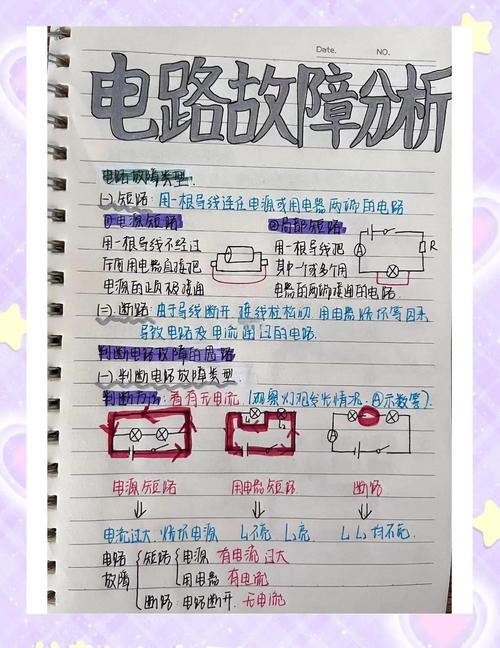 Date. NO.
电路故障分析
电路故障类型.
(一) 短路: 用一根导线连在电源或用电器两端的电路
①电源短路 ②局部短路
用一根导线不经过 用一根导线把
任何用电器直接把 其中一个或多个用
电源的正负极接通 电器的两端接通的电路.
A R
(二) 断路: 由于导线断开, 接线柱松动, 用电器烧坏等因素
导致电路没电流通过的电路.
判断电路故障的思路
(一) 判断电路故障类型.
判断方法: 看有无电流 (观察灯泡发光情况, A示数等).
L₁ L₂ A
电源短路 用电器短路 断路
电流过大, 烧坏电源 L₁不亮 L₂亮 L₁ L₂均不亮.
电路 短路 电源 有电流 过大
故障 用电器 有电流
断路: 电路断开. 无电流